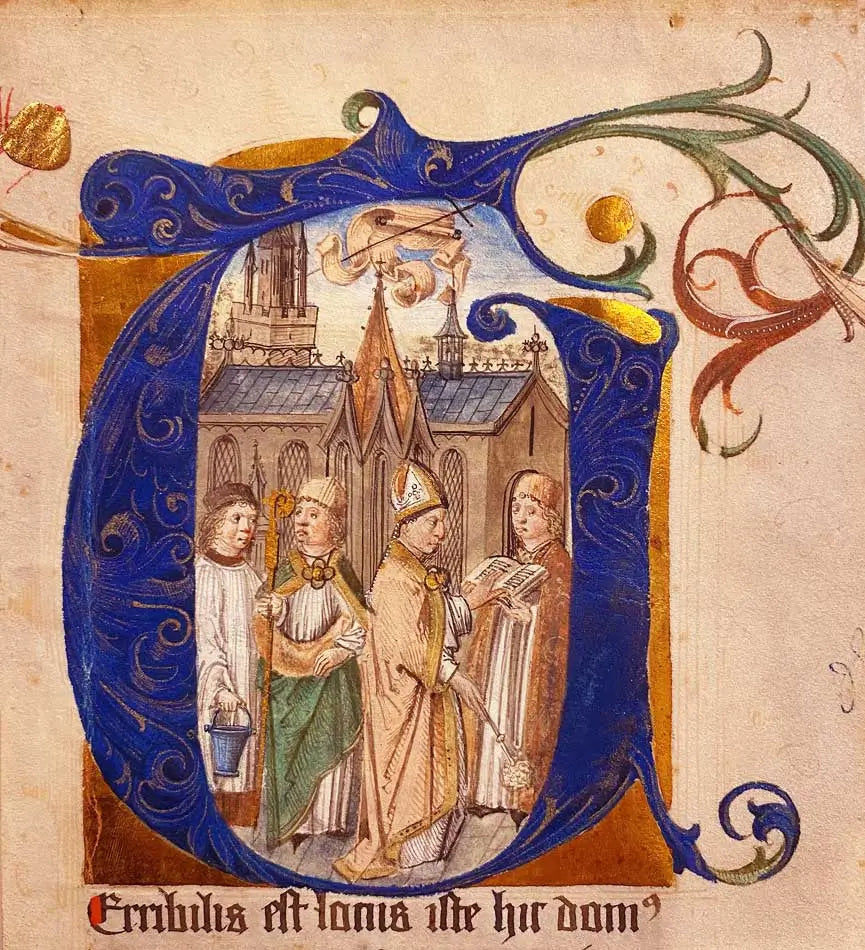 Erribilis est locus iste hic domꝰ